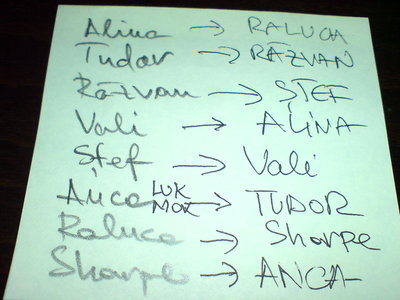 Alina → RALUCA
Tudor → RĂZVAN
Răzvan → ȘTEF
Vali → ALINA
Ștef → Vali
Anca LUK MOZ → TUDOR
Raluca → Sharpe
Sharpe → ANCA